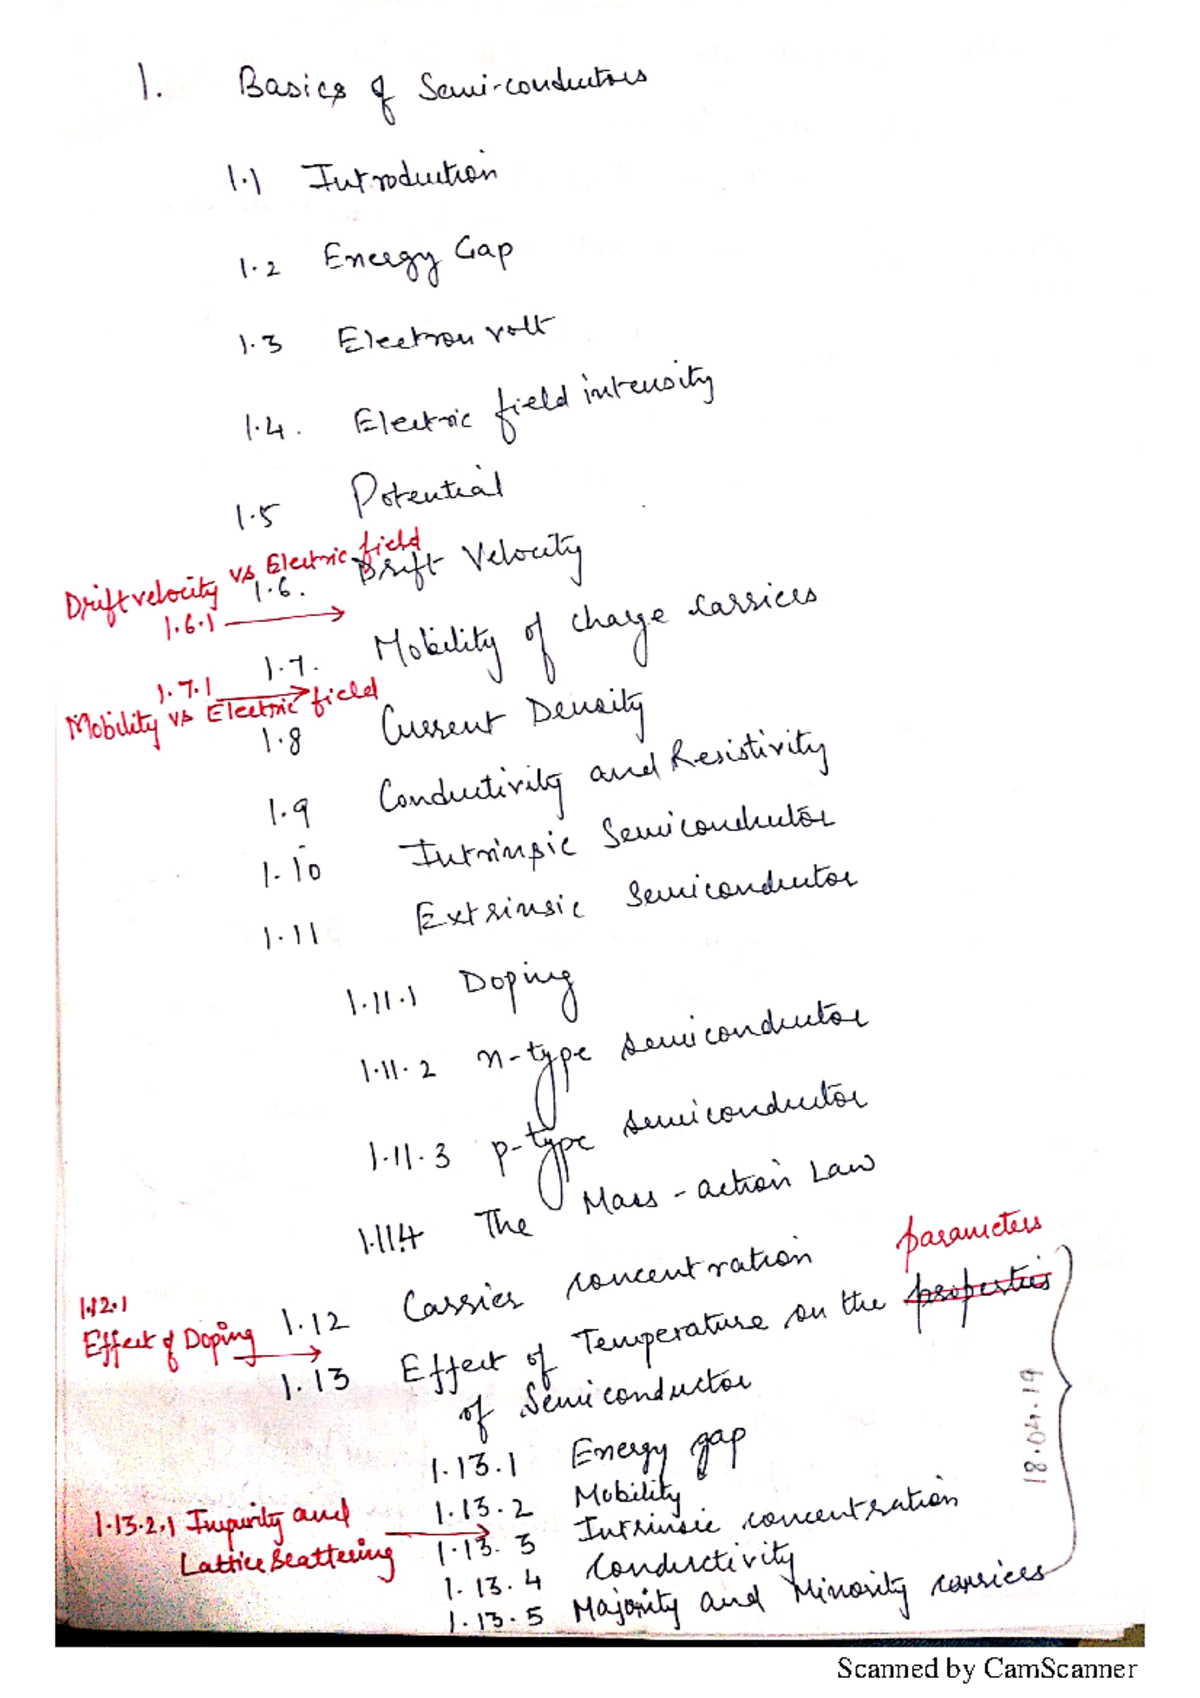 1. Basics of Semi-conductors
1.1 Introduction
1.2 Energy Gap
1.3 Electron volt
1.4. Electric field intensity
1.5 Potential
Drift velocity vs Electric field
1.6. Drift Velocity
1.6.1
1.7. Mobility of charge carriers
1.7.1
Mobility vs Electric field
1.8 Current Density
1.9 Conductivity and Resistivity
1.10 Intrinsic Semiconductor
1.11 Extrinsic semiconductor
1.11.1 Doping
1.11.2 n-type semiconductor
1.11.3 p-type semiconductor
1.11.4 The Mass-action Law
parameters
1.12.1
Effect of Doping
1.12 Carrier concentration
1.13 Effect of Temperature on the properties
of Semiconductor
18.04.19
1.13.1 Energy gap
1.13.2 Mobility
1.13.2.1 Impurity and
Lattice Scattering
1.13.3 Intrinsic concentration
1.13.4 Conductivity
1.13.5 Majority and Minority carriers
Scanned by CamScanner